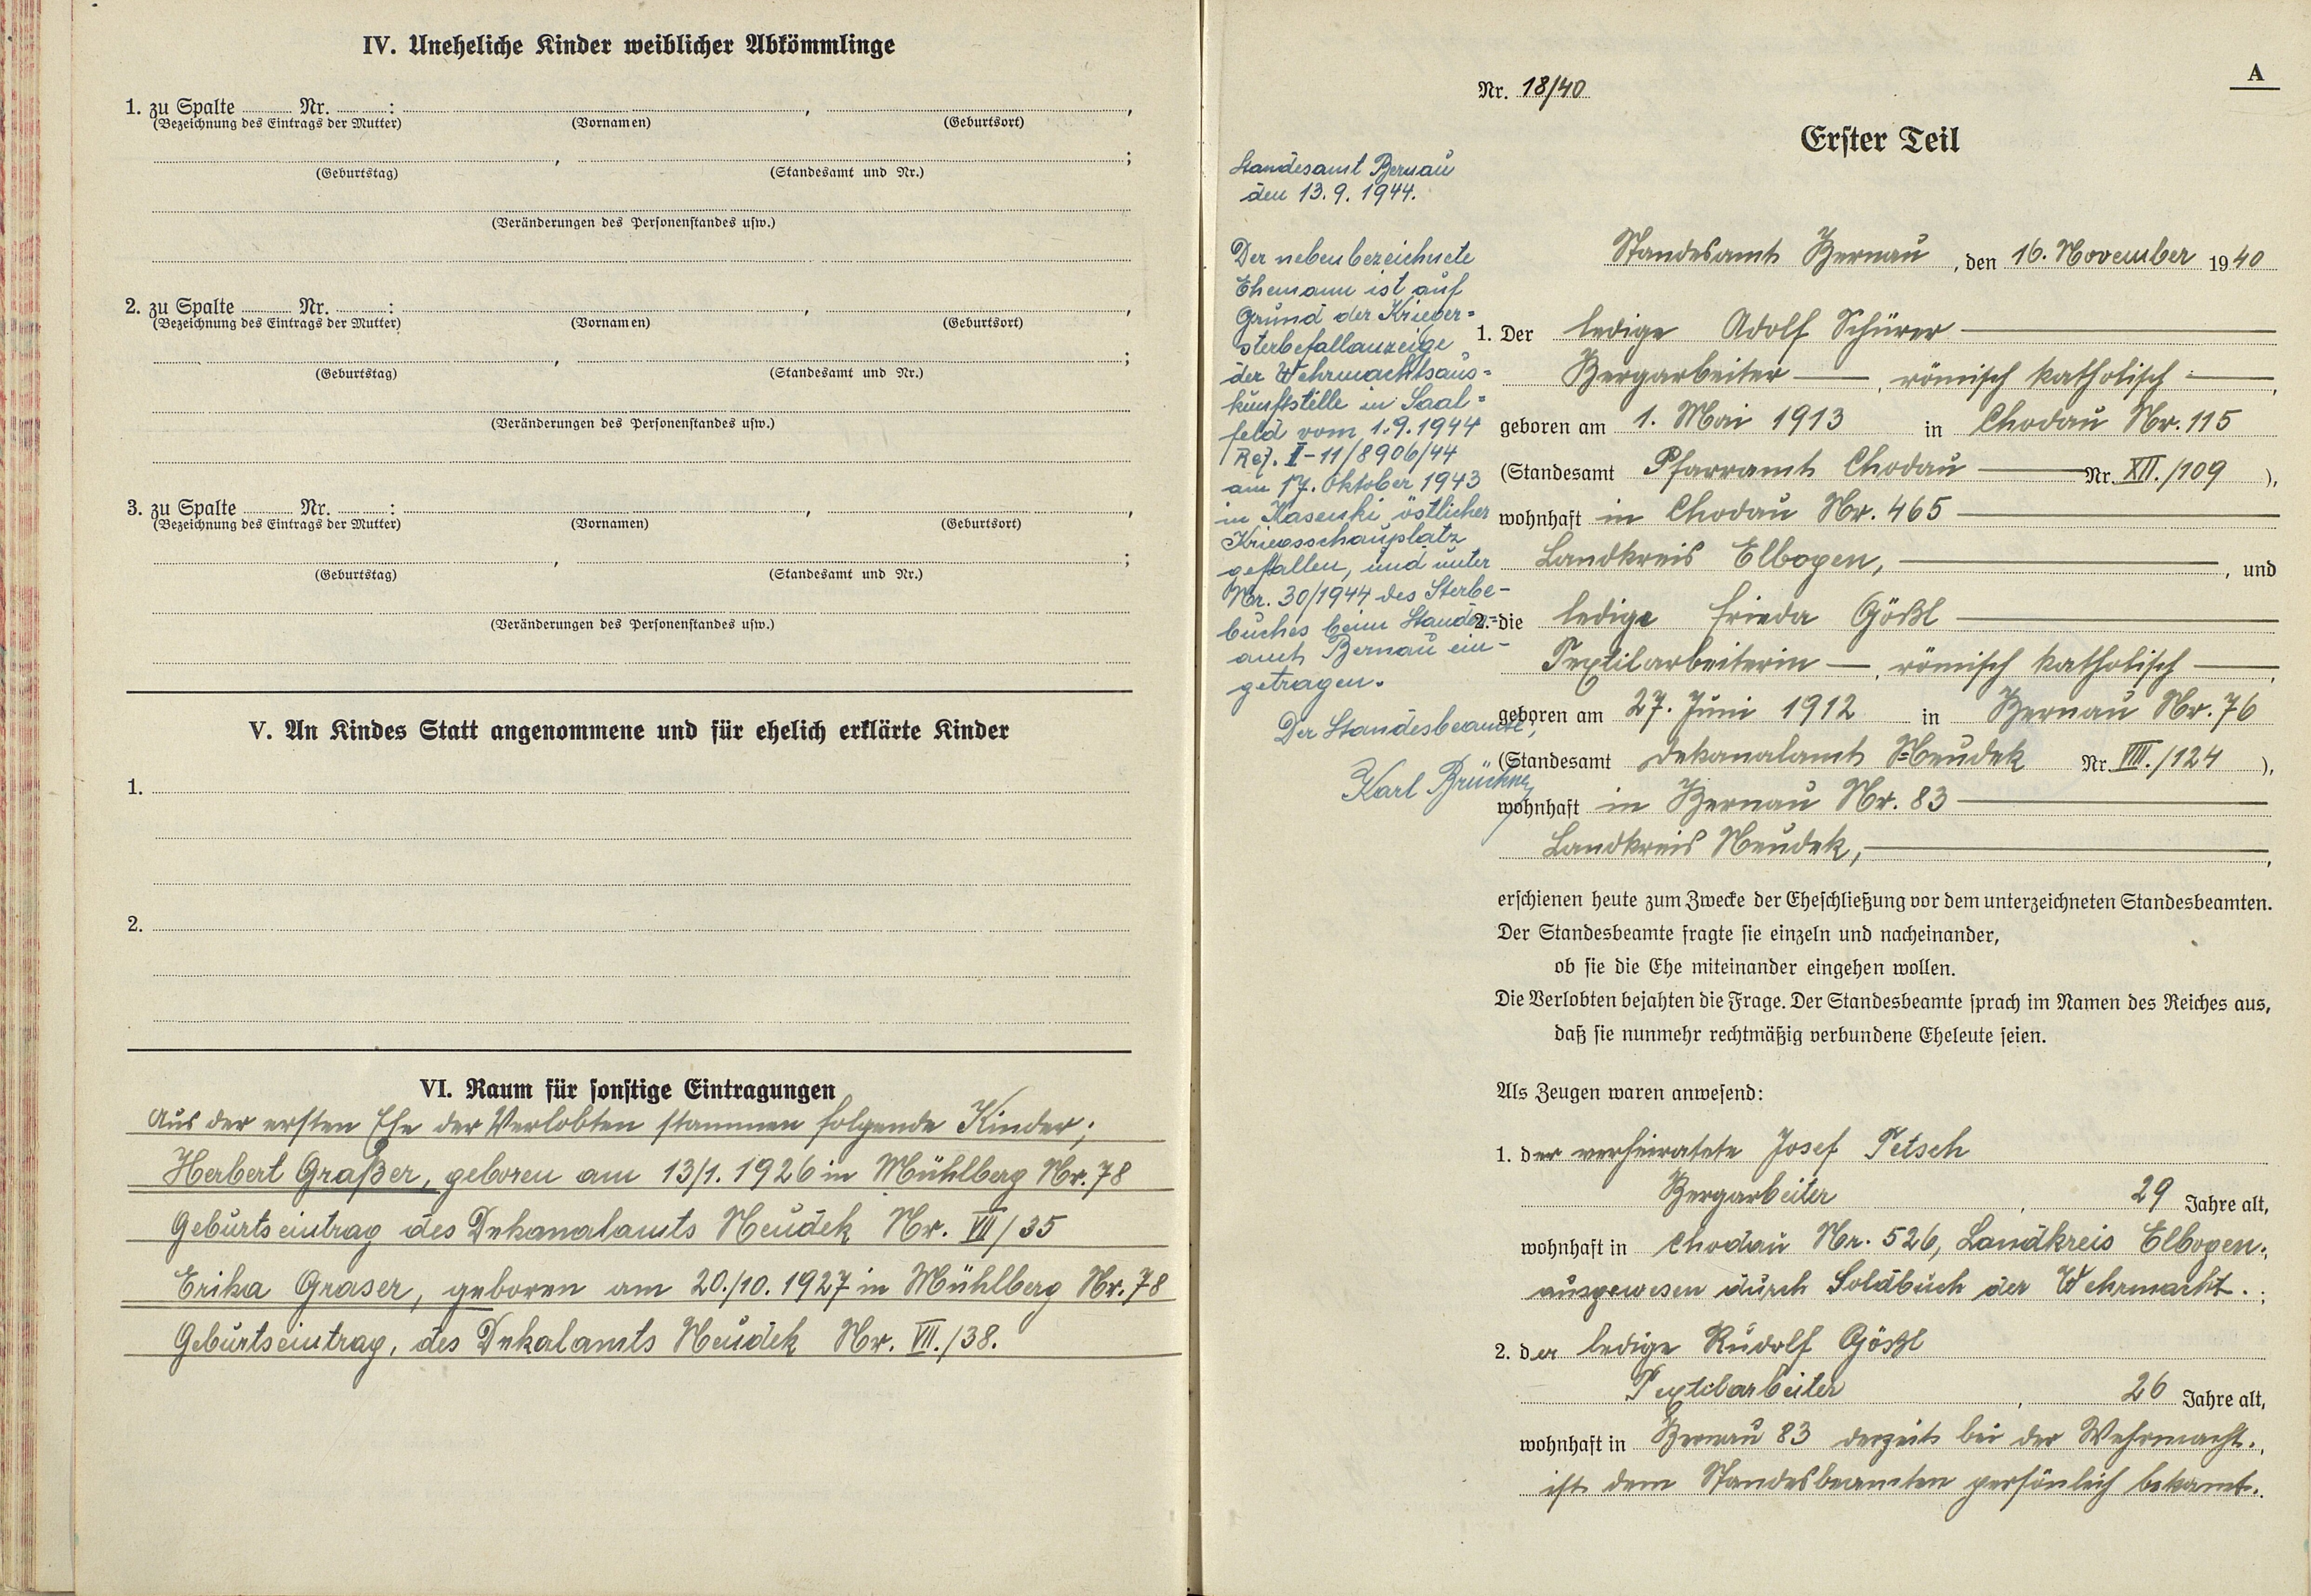 IV. Uneheliche Kinder weiblicher Abkömmlinge
1. zu Spalte ......... Nr. .........: , ,
(Bezeichnung des Eintrags der Mutter) (Vornamen) (Geburtsort)
, ;
(Geburtstag) (Standesamt und Nr.)
(Veränderungen des Personenstandes usw.)
2. zu Spalte ......... Nr. .........: , ,
(Bezeichnung des Eintrags der Mutter) (Vornamen) (Geburtsort)
, ;
(Geburtstag) (Standesamt und Nr.)
(Veränderungen des Personenstandes usw.)
3. zu Spalte ......... Nr. .........: , ,
(Bezeichnung des Eintrags der Mutter) (Vornamen) (Geburtsort)
, ;
(Geburtstag) (Standesamt und Nr.)
(Veränderungen des Personenstandes usw.)
V. An Kindes Statt angenommene und für ehelich erklärte Kinder
1.
2.
VI. Raum für sonstige Eintragungen
Aus der ersten Ehe der Verlobten stammen folgende Kinder;
Herbert Graßer, geboren am 13/1. 1926 in Mühlberg Nr. 78
Geburtseintrag des Dekanalamts Neudek Nr. VII/35
Erika Graser, geboren am 20./10. 1927 in Mühlberg Nr. 78
Geburtseintrag, des Dekalamts Neudek Nr. VII./38.
A
Nr. 18/40
Erster Teil
Standesamt Bernau
den 13. 9. 1944.
Der nebenbezeichnete
Ehemann ist auf
Grund der Krieger=
sterbefallanzeige
der Wehrmachtsaus=
kunftstelle in Saal=
feld vom 1.9.1944
Ref. II-11/8906/44
am 17. Oktober 1943
in Kasenki östlicher
Kriegsschauplatz
gefallen, und unter
Nr. 30/1944 des Sterbe-
buches beim Standes=
amt Bernau ein-
getragen.
Der Standesbeamte;
Karl Brückner
Standesamt Bernau, den 16. November 1940
1. Der ledige Adolf Schürer
Bergarbeiter, römisch katholisch,
geboren am 1. Mai 1913 in Chodau Nr. 115
(Standesamt Pfarramt Chodau Nr. XII./109 ),
wohnhaft in Chodau Nr. 465
Landkreis Elbogen, , und
2. die ledige Frieda Gößl
Textilarbeiterin, römisch katholisch,
geboren am 27. Juni 1912 in Bernau Nr. 76
(Standesamt Dekanalamt Neudek Nr. VIII./124 ),
wohnhaft in Bernau Nr. 83
Landkreis Neudek, ,
erschienen heute zum Zwecke der Eheschließung vor dem unterzeichneten Standesbeamten.
Der Standesbeamte fragte sie einzeln und nacheinander,
ob sie die Ehe miteinander eingehen wollen.
Die Verlobten bejahten die Frage. Der Standesbeamte sprach im Namen des Reiches aus,
daß sie nunmehr rechtmäßig verbundene Eheleute seien.
Als Zeugen waren anwesend:
1. der verheiratete Josef Petsch
Bergarbeiter, 29 Jahre alt,
wohnhaft in Chodau Nr. 526, Landkreis Elbogen;
ausgewesen durch Soldbuch der Wehrmacht. ;
2. der ledige Rudolf Gößl
Textilarbeiter, 26 Jahre alt,
wohnhaft in Bernau 83 derzeit bei der Wehrmacht.,
ist dem Standesbeamten persönlich bekannt.